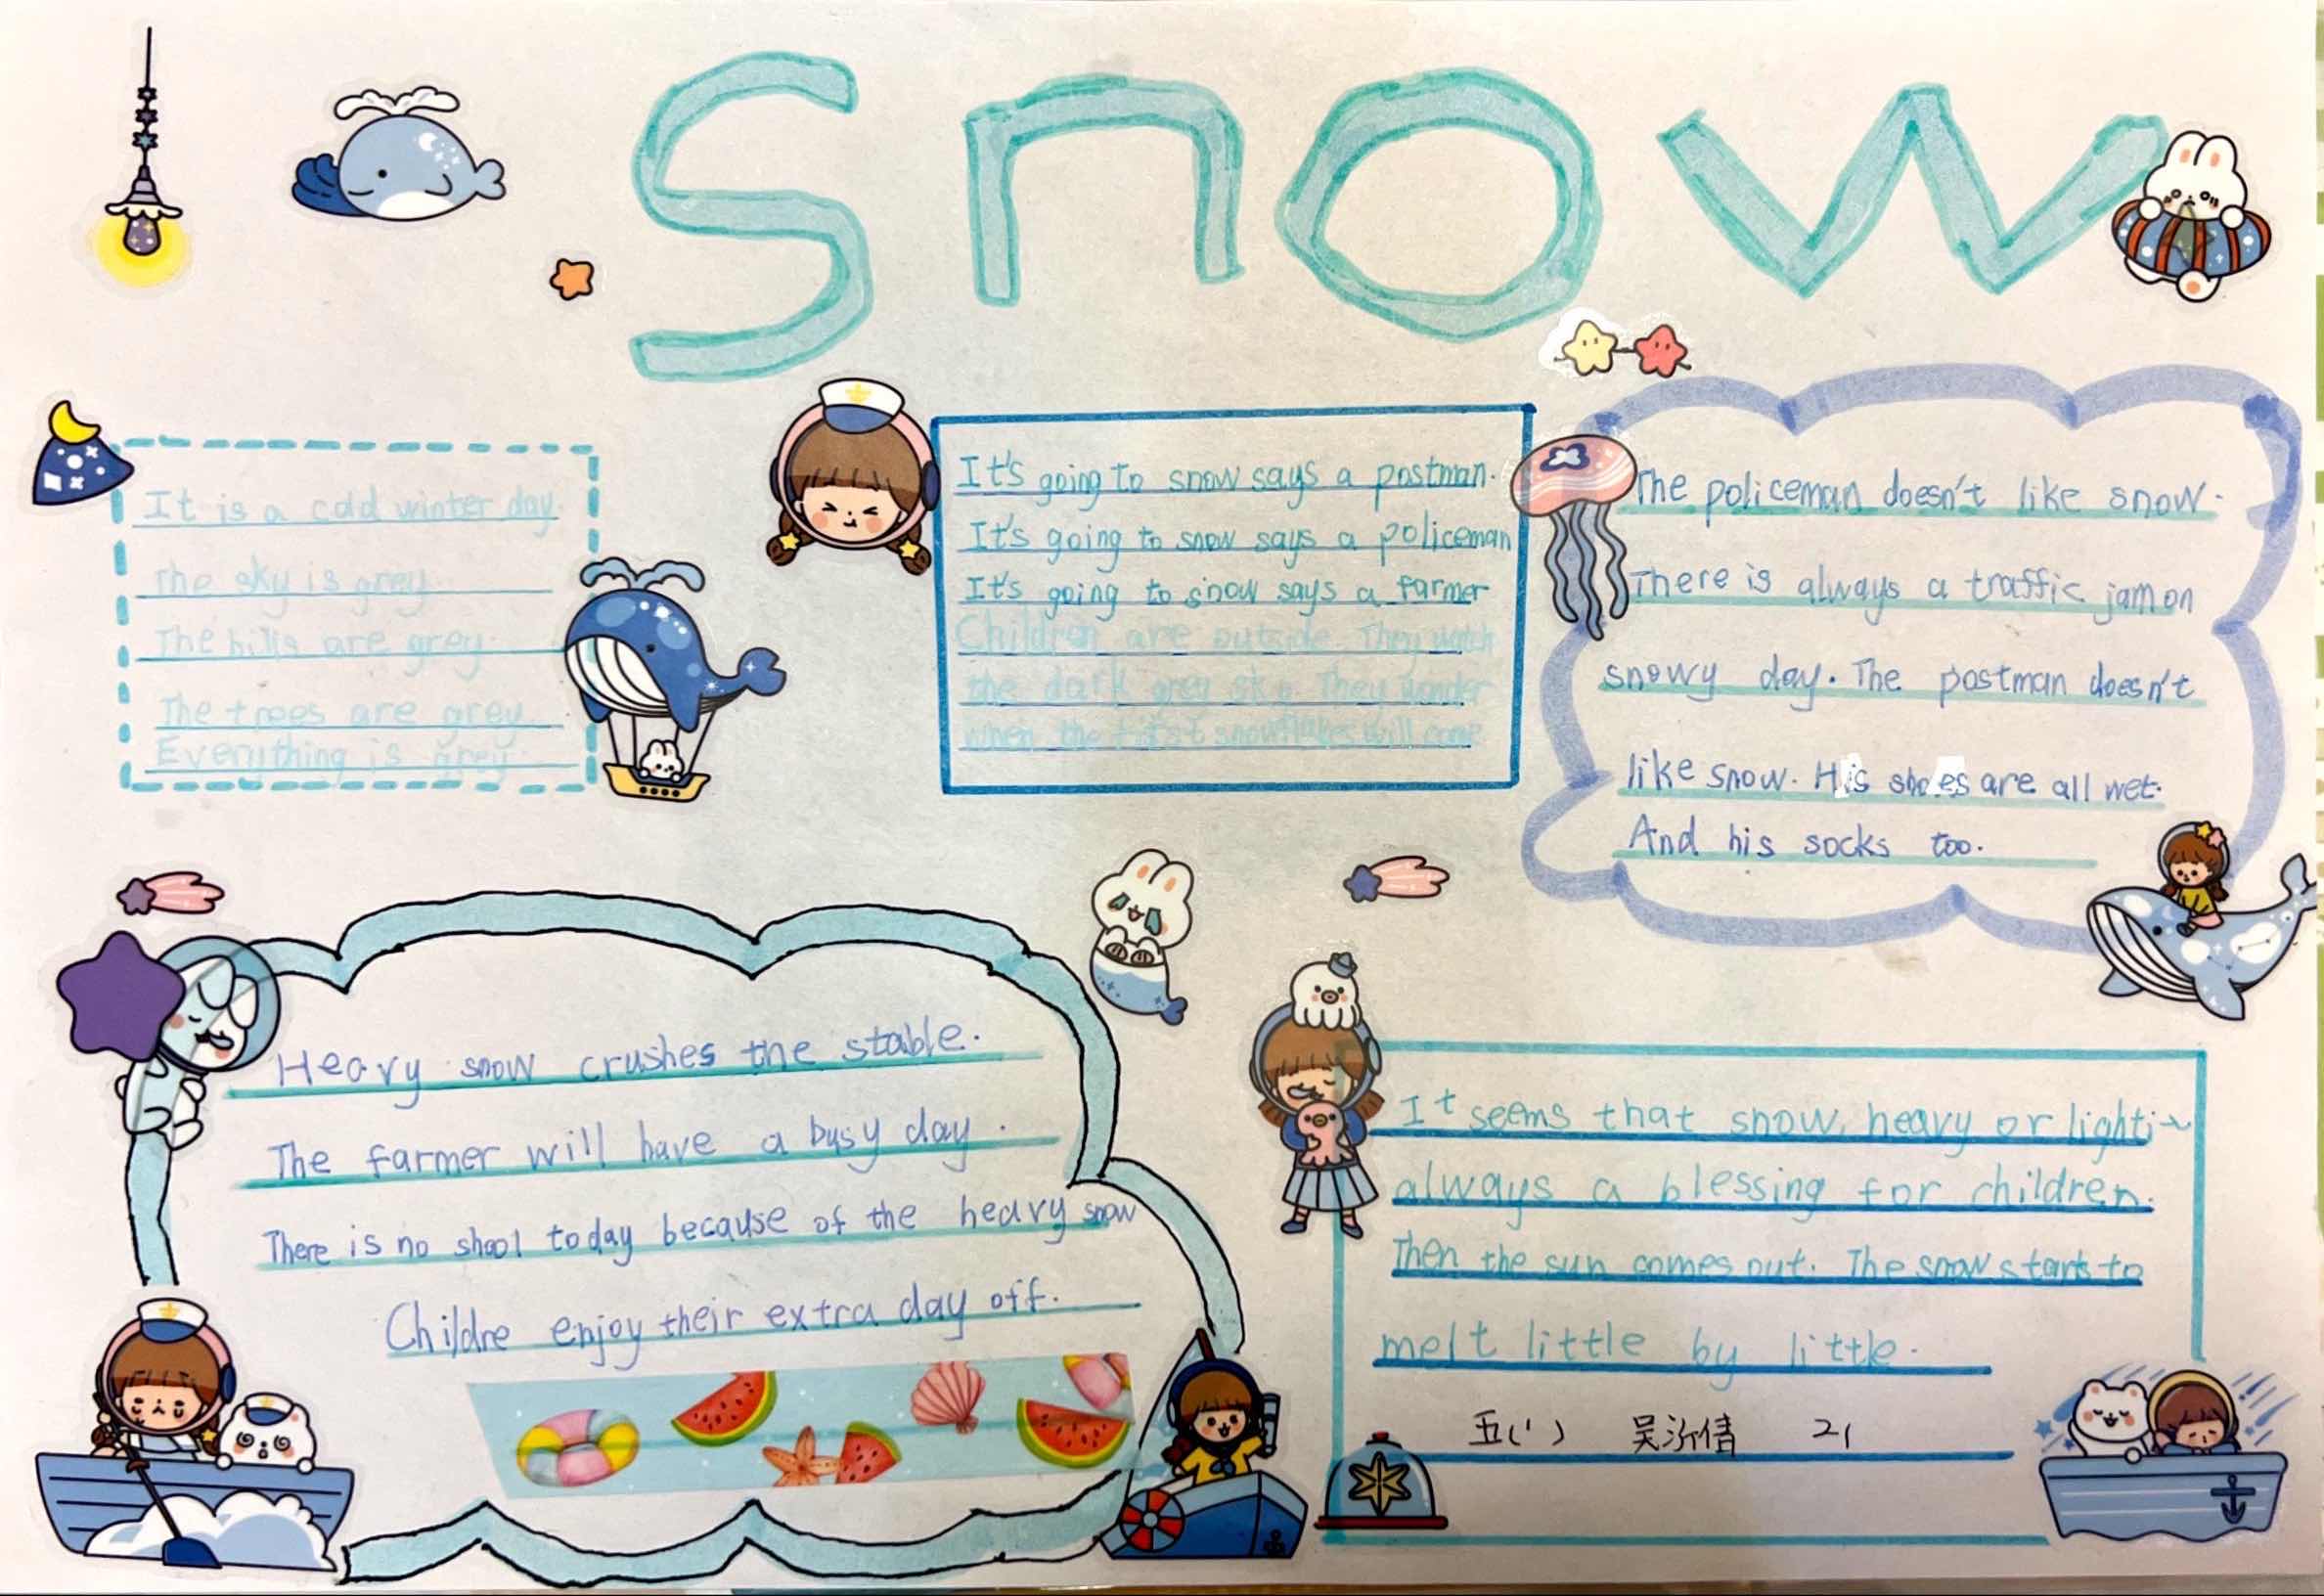 Snow
It is a cold winter day.
The sky is grey.
The hills are grey.
The trees are grey.
Everything is grey.
It's going to snow says a postman.
It's going to snow says a policeman
It's going to snow says a farmer
Children are outside. They watch
the dark grey sky. They wonder
when the first snowflakes will come
The policeman doesn't like snow.
There is always a traffic jam on
snowy day. The postman doesn't
like snow. His shoes are all wet.
And his socks too.
Heavy snow crushes the stable.
The farmer will have a busy day.
There is no shool today because of the heavy snow
Childre enjoy their extra day off.
It seems that snow, heavy or light is
always a blessing for children.
Then the sun comes out. The snow starts to
melt little by little.
五(1) 吴沂倩 21